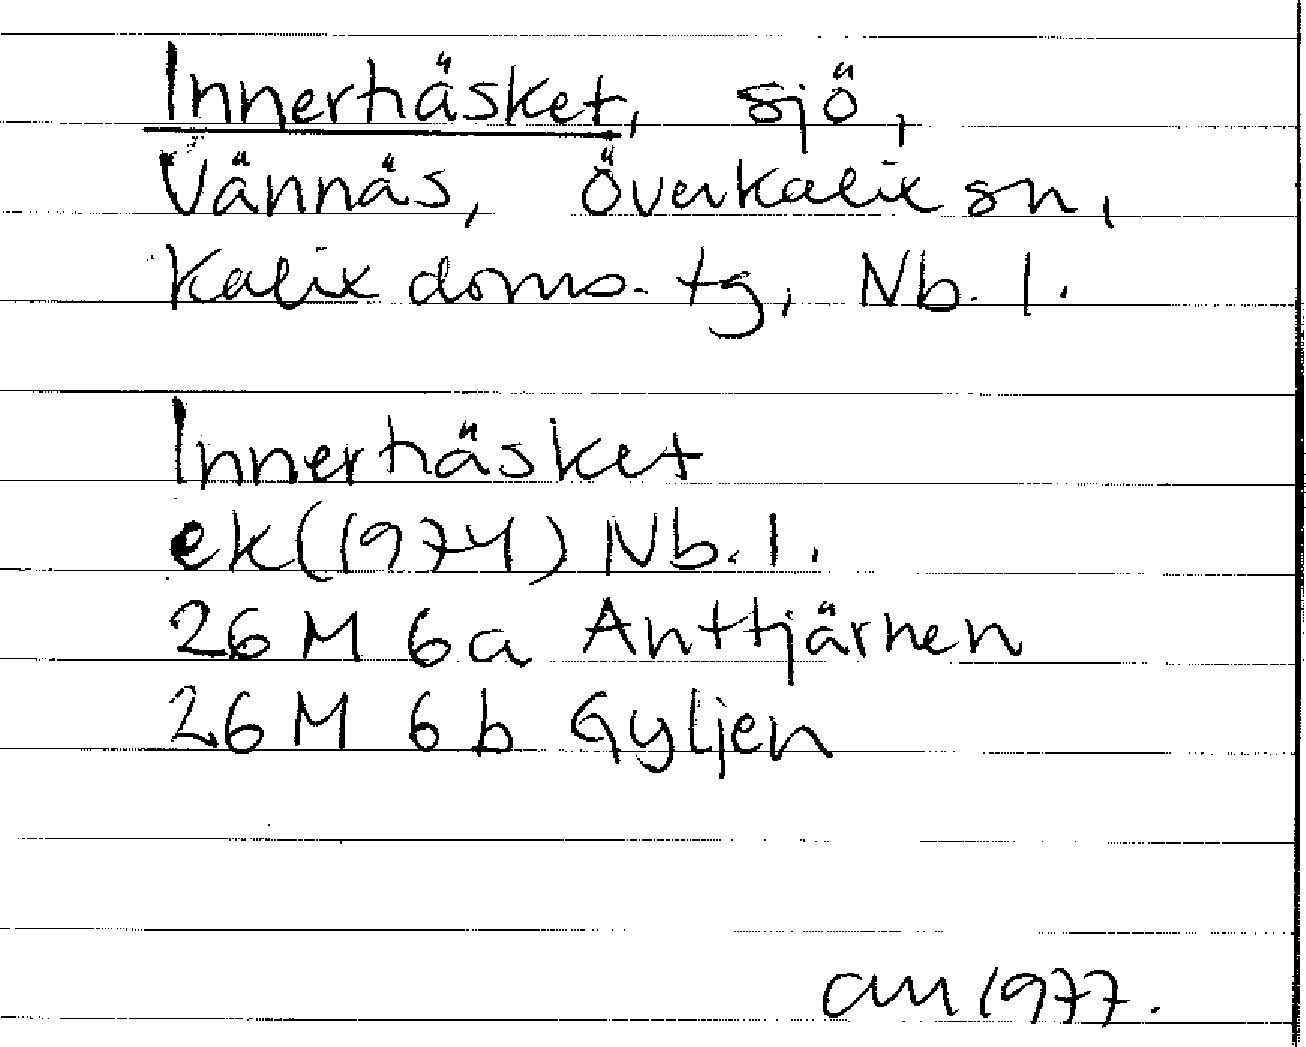 Innerhäsket, sjö,
Vännäs, Överkalix sn,
Kalix doms. tg, Nb. l.
Innerhäsket
ek(1974) Nb. l.
26 M 6a Anttjärnen
26 M 6 b Gyljen
am 1977.